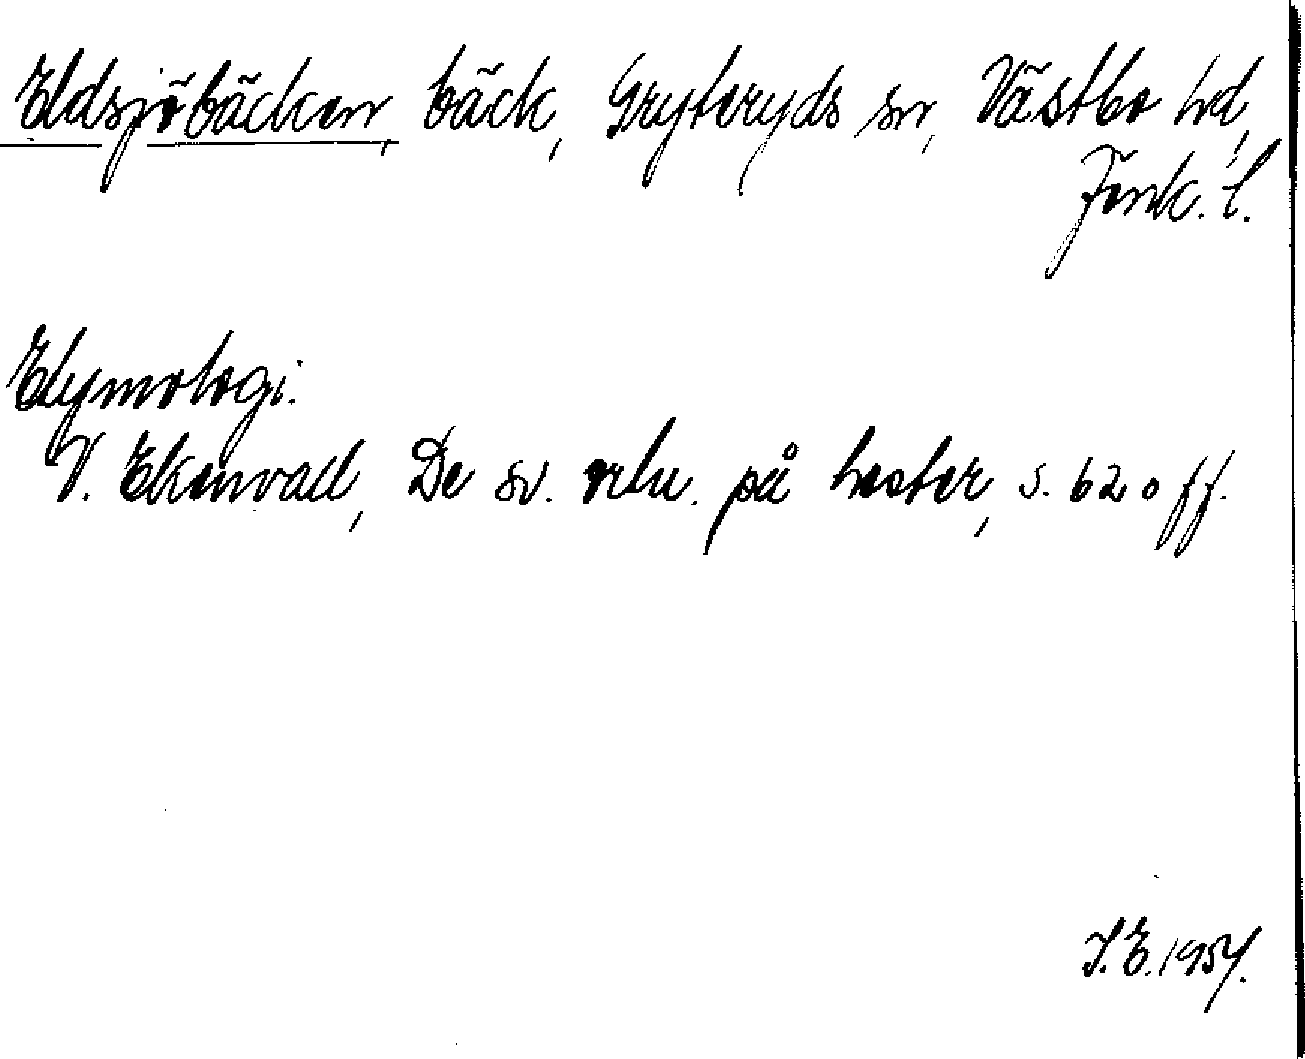 Eldsjöbäcken, bäck, Gryteryds sn, Västbo hd,
Jönk. l.
Etymologi.
V. Ekenvall, De sv. ortn. på hester, s. 620 ff.
I.E. 1957.